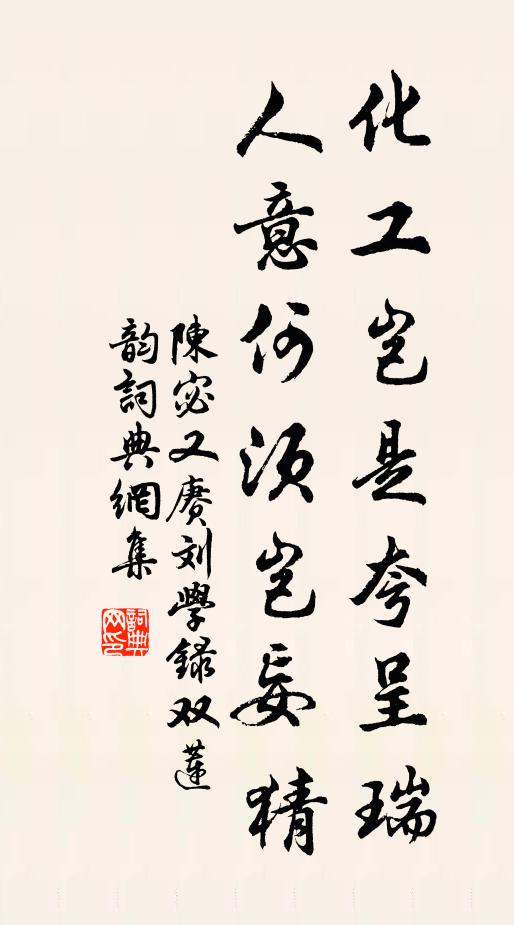 化工岂是夸呈瑞
人意何须岂妄猜
陳宓又赓刘學録双蓮
韵詞典網集
詞典网印